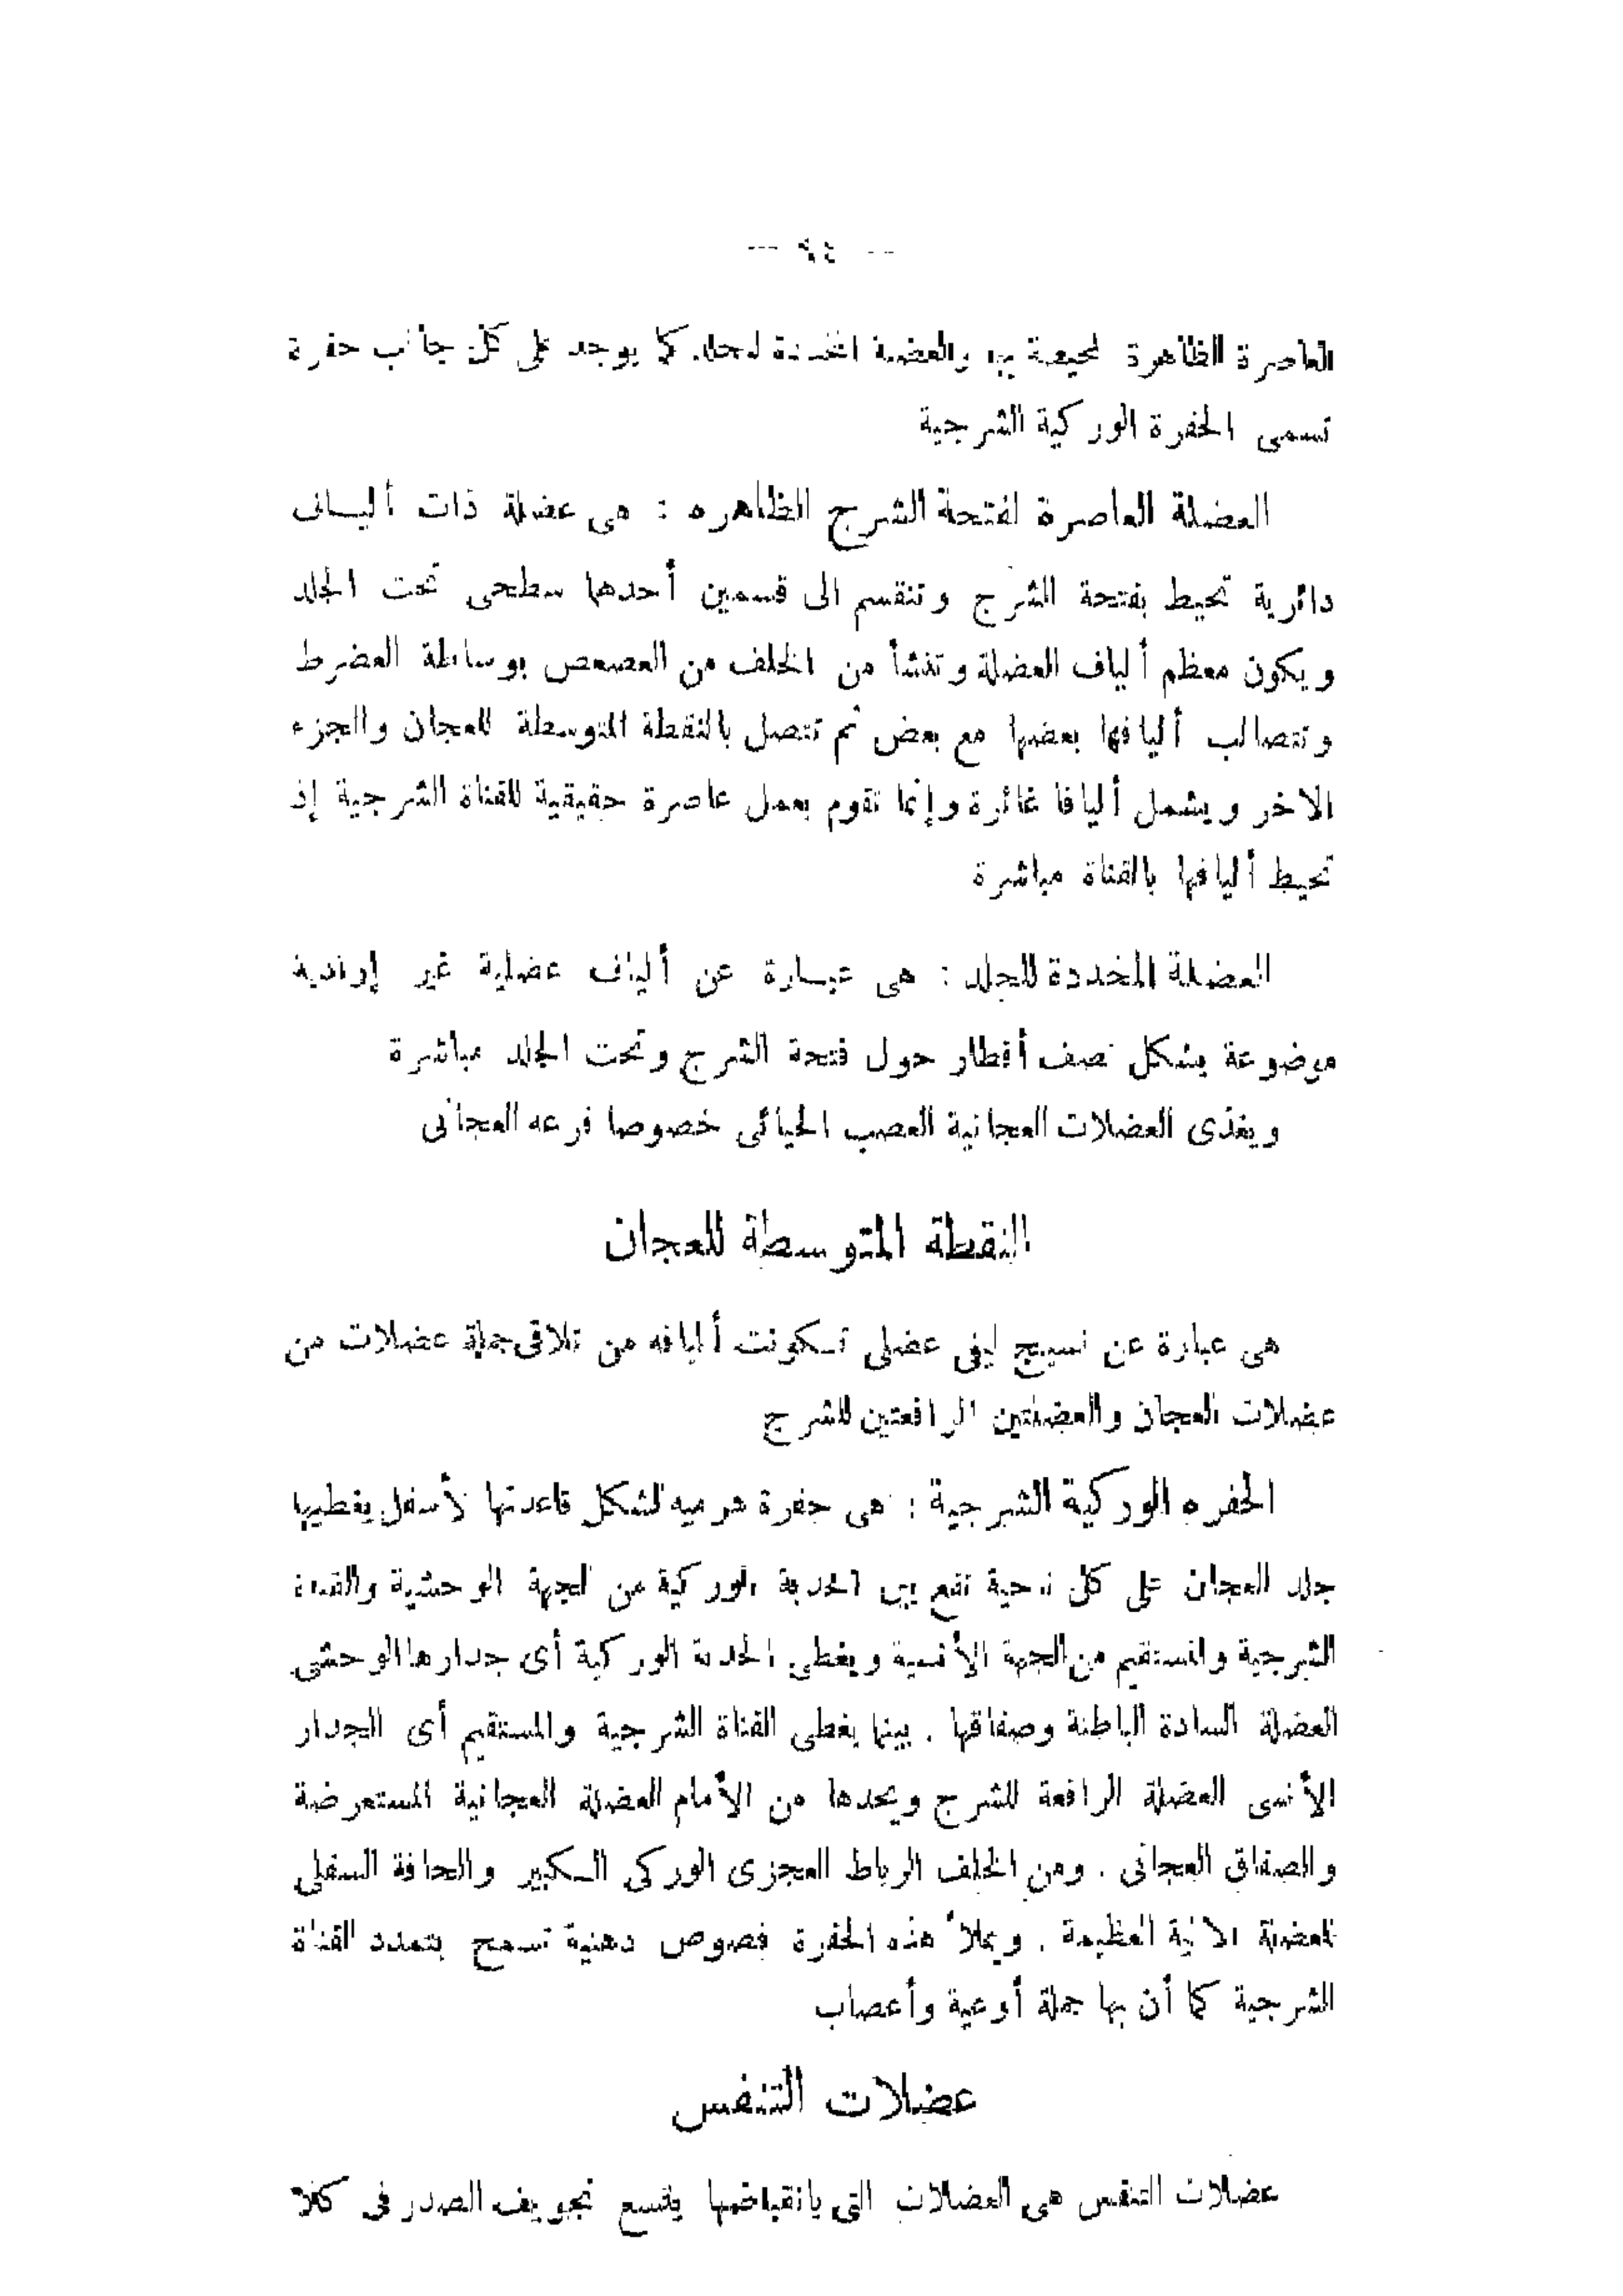 — ٩٤ —
العاصرة الظاهرة المحيطة به والعضلة المخددة للجلد كما يوجد على كل جانب حفرة
تسمى الحفرة الوركية الشرجية
العضلة العاصرة لفتحة الشرج الظاهره : هى عضلة ذات أليــاف
دائرية تحيط بفتحة الشرج وتنقسم الى قسمين أحدهما سطحى تحت الجلد
ويكون معظم ألياف العضلة وتنشأ من الخلف من العصعص بوساطة العضرط
وتتصالب أليافها بعضها مع بعض ثم تتصل بالنقطة المتوسطة للعجان والجزء
الاخر ويشمل أليافا غائرة وإنما تقوم بعمل عاصرة حقيقية للقناة الشرجية إذ
تحيط أليافها بالقناة مباشرة
العضلة المخددة للجلد : هى عبــارة عن ألياف عضلية غير إرادية
موضوعة بشكل نصف أقطار حول فتحة الشرج وتحت الجلد مباشرة
ويغذى العضلات العجانية العصب الحيائى خصوصا فرعه العجانى
النقطة المتوسطة للعجان
هى عبارة عن نسيج ليفى عضلى تـكونت أليافه من تلاقى جملة عضلات من
عضلات العجان والعضلتين الرافعتين للشرج
الحفره الوركية الشرجية : هى حفرة هرميه الشكل قاعدتها لأسفل يغطيها
جلد العجان على كل ناحية تقع بين الحدبة الوركية من الجهة الوحشية والقناة
الشرجية والمستقيم من الجهة الأنسية ويغطى الحدبة الوركية أى جدارها الوحشى
العضلة السادة الباطنة وصفاقها . بينما يغطى القناة الشرجية والمستقيم أى الجدار
الأنسى العضلة الرافعة للشرج ويحدها من الأمام العضلة العجانية المستعرضة
والصفاق العجانى . ومن الخلف الرباط العجزى الوركى الـكبير والحافة السفلى
للعضلة الاليية العظيمة . ويملأ هذه الحفرة فصوص دهنية تسمح بتمدد القناة
الشرجية كما أن بها جملة أوعية وأعصاب
عضلات التنفس
عضلات التنفس هى العضلات التى بانقباضها يتسع تجويف الصدر فى كلا